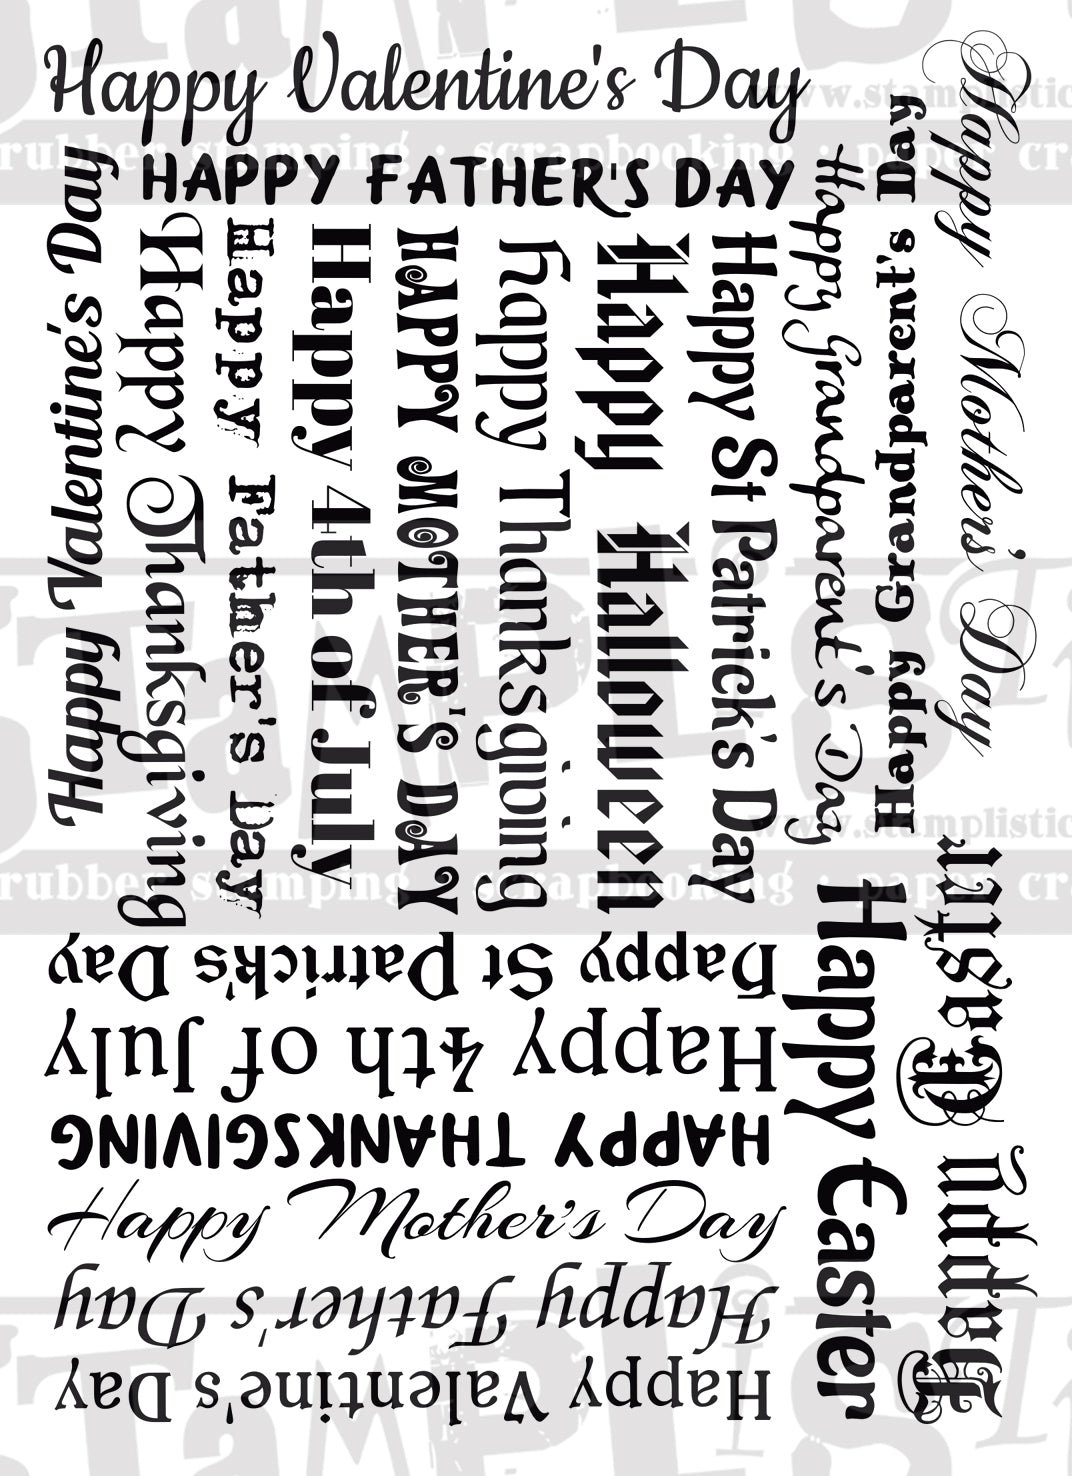 Happy Valentine's Day
HAPPY FATHER'S DAY
Happy Valentine's Day
Happy Thanksgiving
Happy Father's Day
Happy 4th of July
HAPPY MOTHER'S DAY
Happy Thanksgiving
Happy Halloween
Happy St Patrick's Day
Happy Grandparent's Day
Happy Grandparent's Day
Happy Mothers' Day
Happy St Patrick's Day
Happy 4th of July
HAPPY THANKSGIVING
Happy Mother's Day
Happy Father's Day
Happy Valentine's Day
Happy Easter
Happy Easter
www.stamplistic
rubber stamping · scrapbooking · paper cr
STAMPLISTi
www.stamplistic
rubber stamping · scrapbooking · paper cr